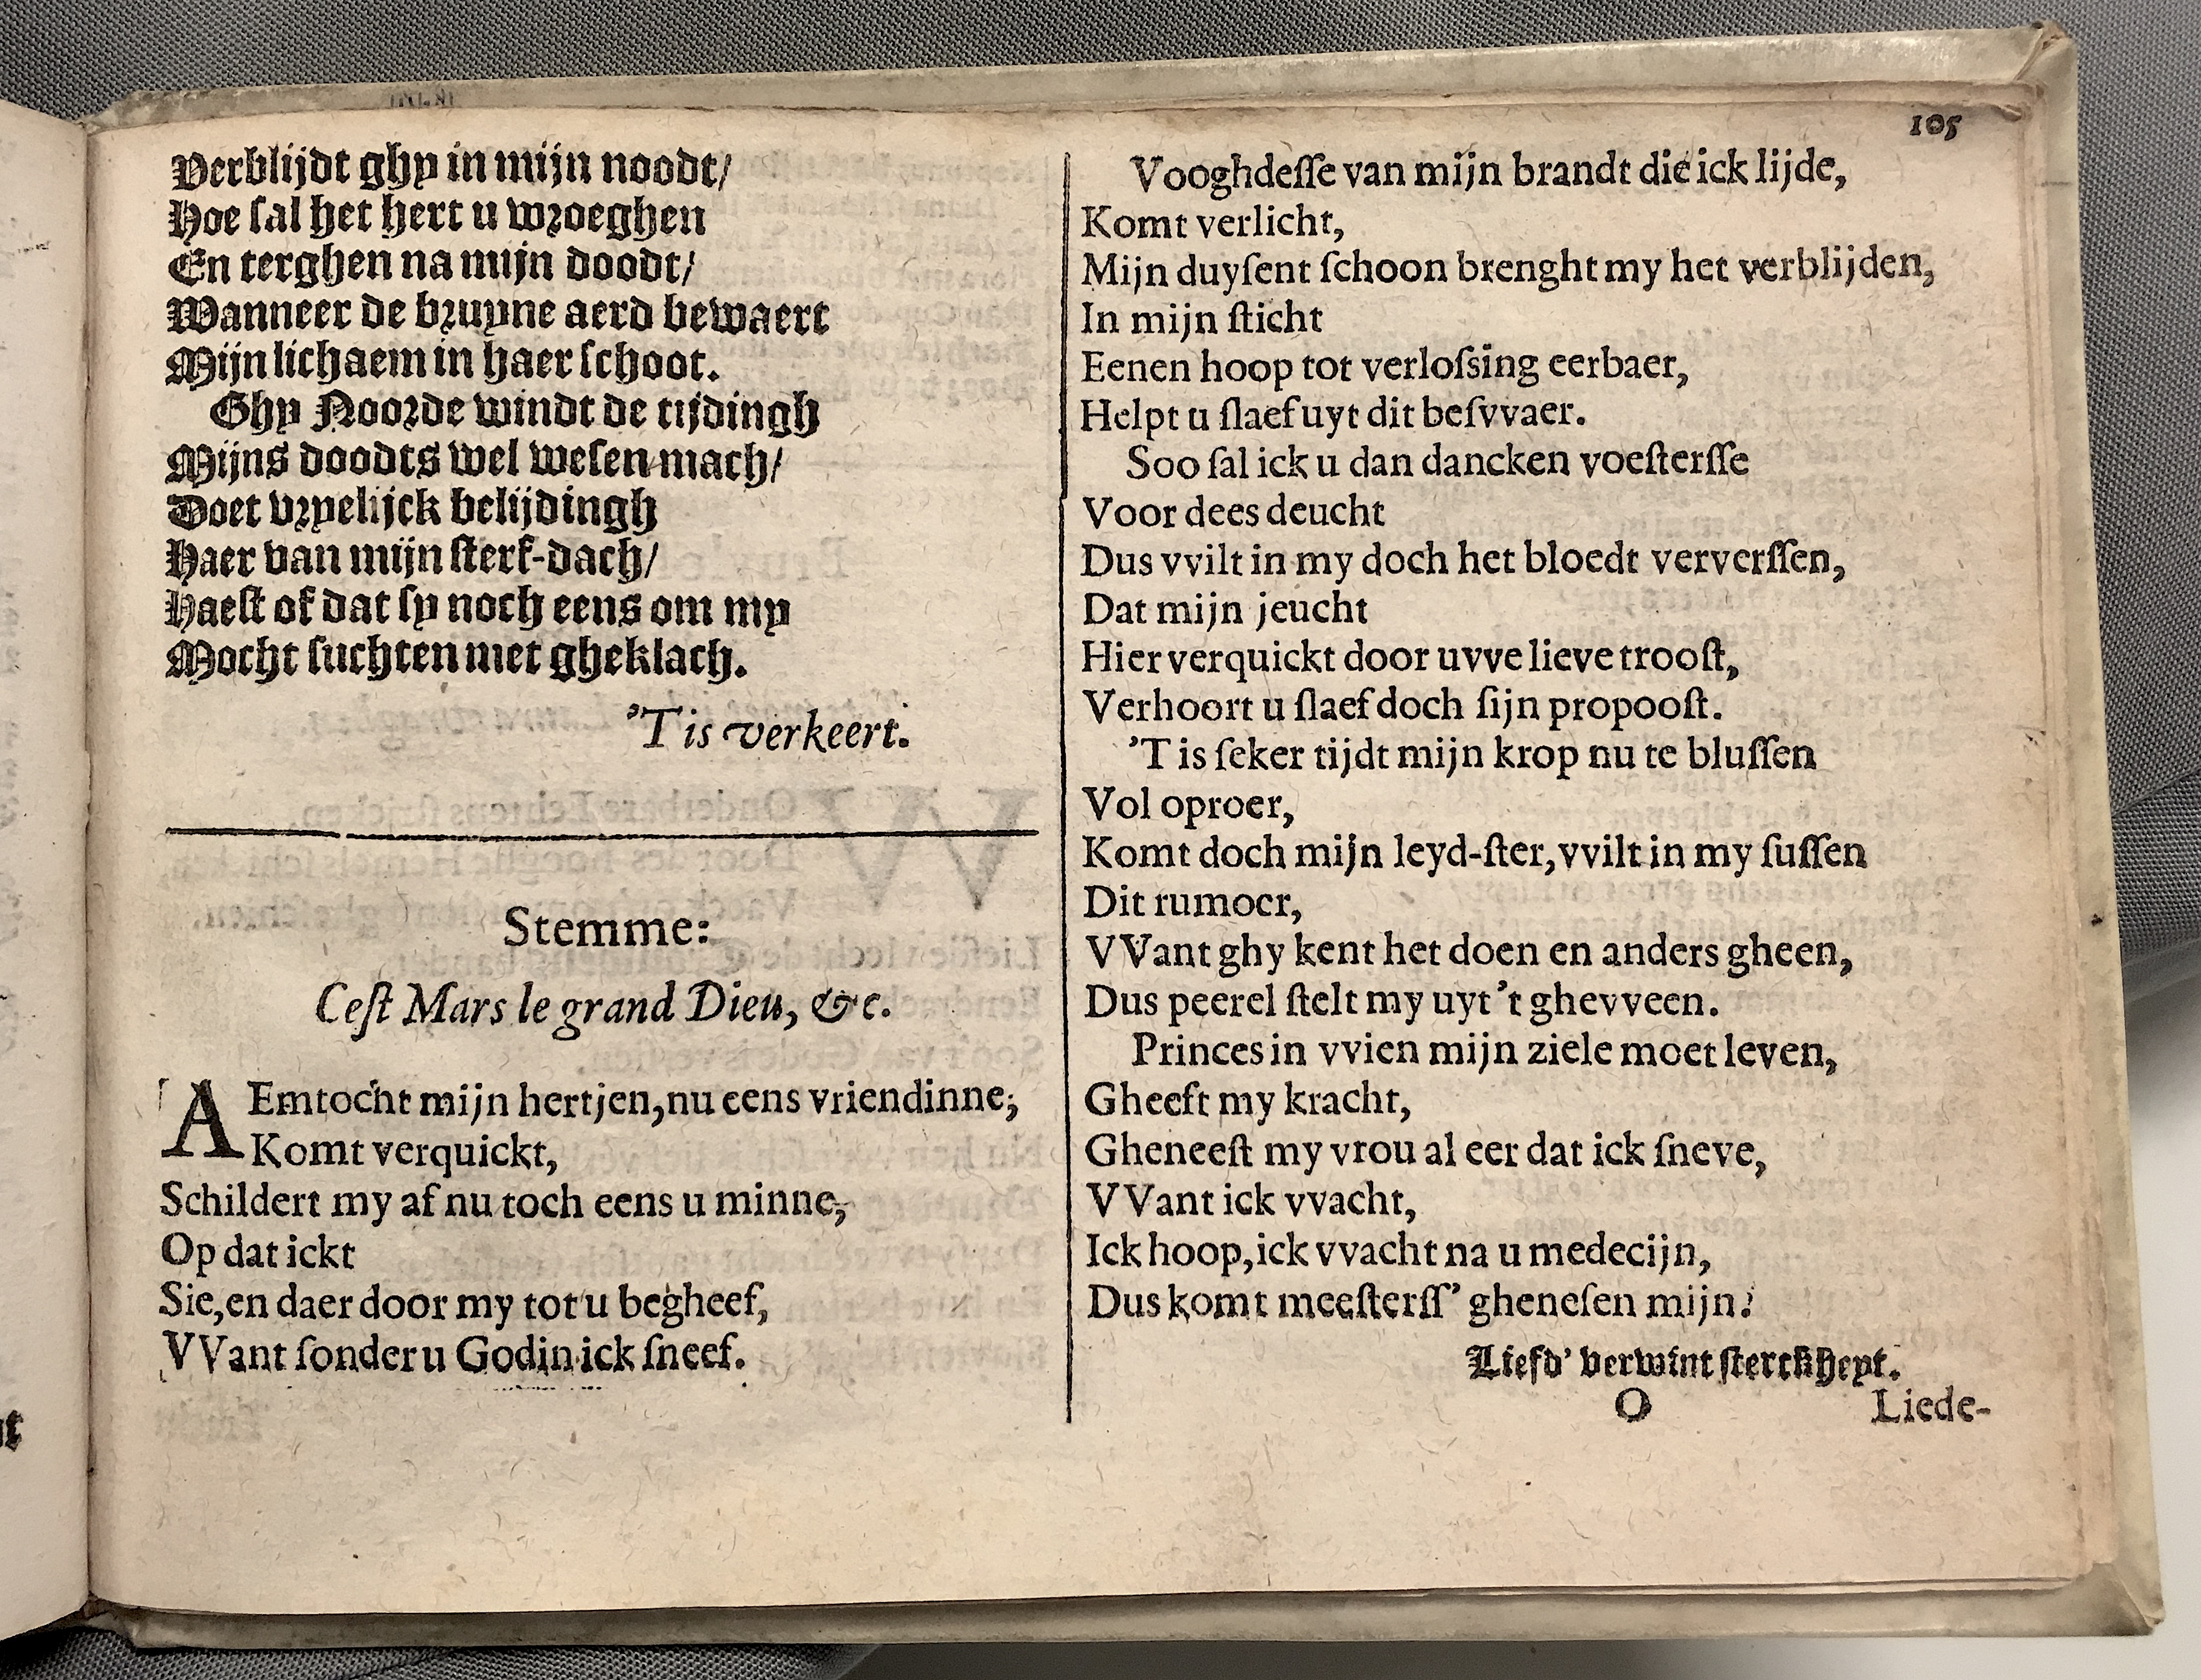 105
Verblijdt ghy in mijn noodt/
Hoe ſal het hert u wroeghen
En terghen na mijn doodt/
Wanneer de bruyne aerd bewaert
Mijn lichaem in haer ſchoot.
Ghy Noorde windt de tijdingh
Mijns doodts wel weſen mach/
Doet vryelijck belijdingh
Haer van mijn ſterf-dach/
Haeſt of dat ſy noch eens om my
Mocht ſuchten met gheklach.
'T is verkeert.
Stemme:
Ceſt Mars le grand Dieu, &c.
AEmtocht mijn hertjen, nu eens vriendinne,
Komt verquickt,
Schildert my af nu toch eens u minne,
Op dat ickt
Sie, en daer door my tot u begheef,
VVant ſonder u Godin ick ſneef.
Vooghdeſſe van mijn brandt die ick lijde,
Komt verlicht,
Mijn duyſent ſchoon brenght my het verblijden,
In mijn ſticht
Eenen hoop tot verloſsing eerbaer,
Helpt u ſlaef uyt dit beſvvaer.
Soo ſal ick u dan dancken voeſterſſe
Voor dees deucht
Dus vvilt in my doch het bloedt ververſſen,
Dat mijn jeucht
Hier verquickt door uvve lieve trooſt,
Verhoort u ſlaef doch ſijn propooſt.
'T is ſeker tijdt mijn krop nu te bluſſen
Vol oproer,
Komt doch mijn leyd-ſter, vvilt in my ſuſſen
Dit rumoer,
VVant ghy kent het doen en anders gheen,
Dus peerel ſtelt my uyt 't ghevveen.
Princes in vvien mijn ziele moet leven,
Gheeft my kracht,
Gheneeſt my vrou al eer dat ick ſneve,
VVant ick vvacht,
Ick hoop, ick vvacht na u medecijn,
Dus komt meeſterſſ' gheneſen mijn.
Liefd' verwint ſterckheyt.
O
Liede-